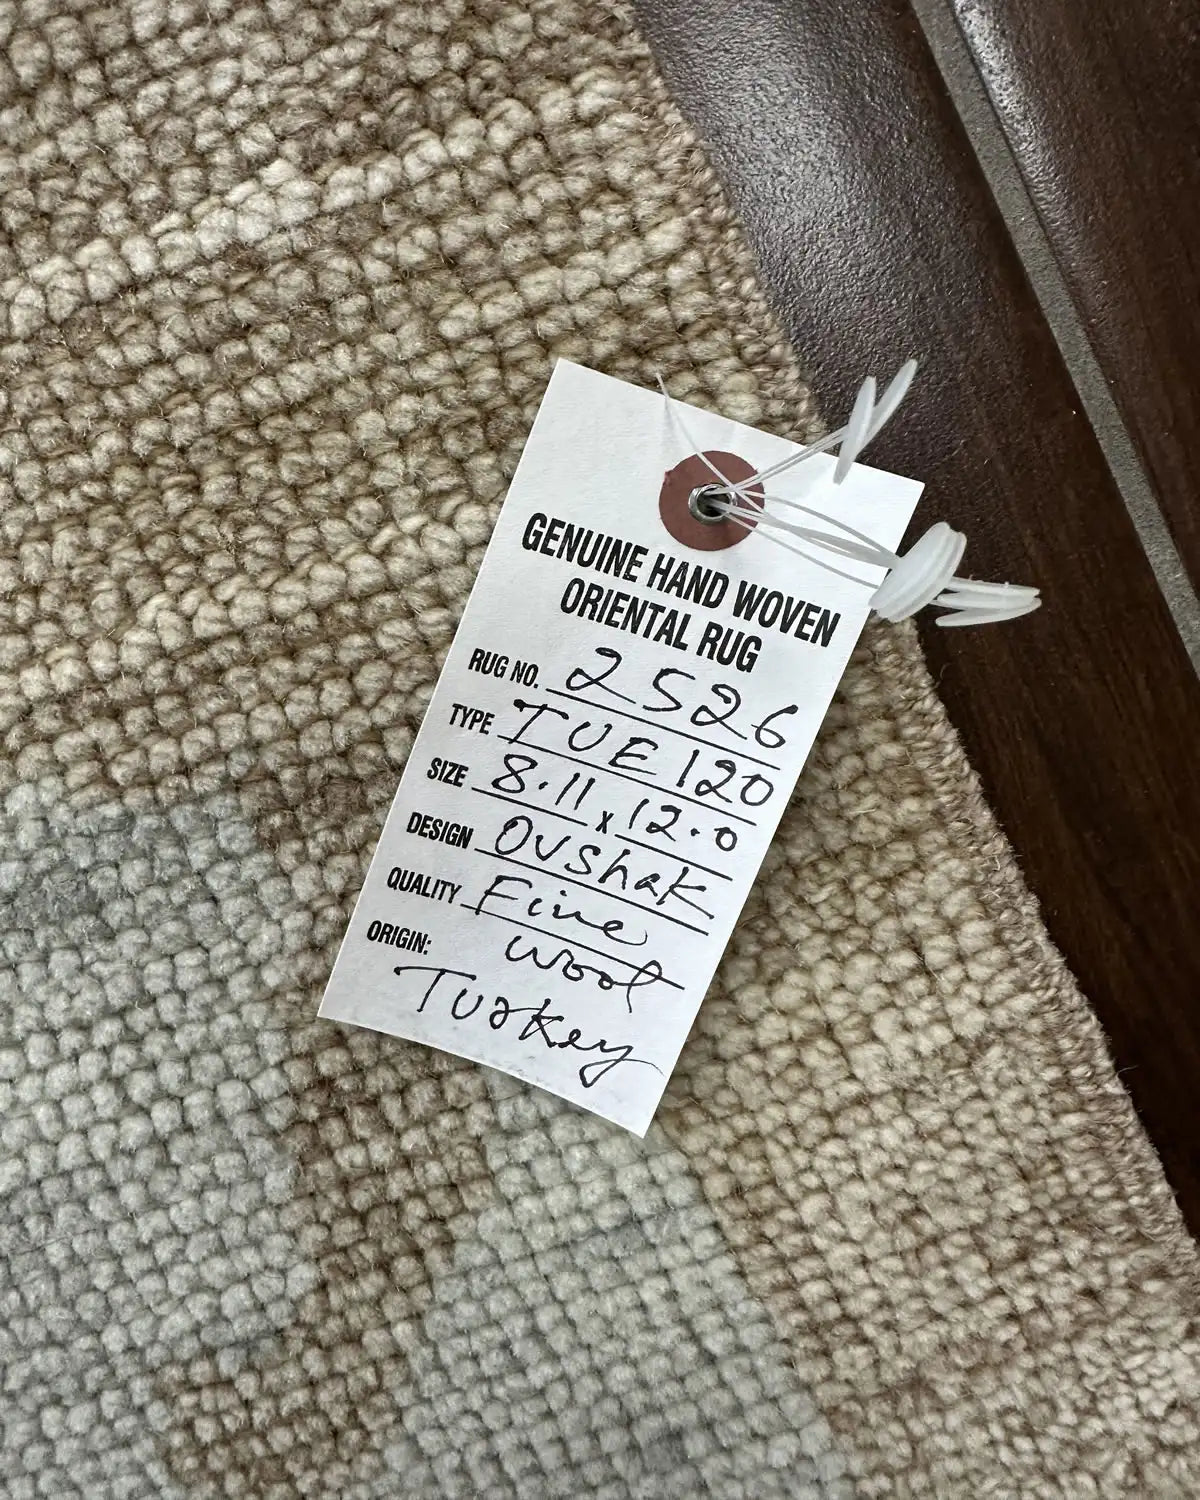 GENUINE HAND WOVEN
ORIENTAL RUG
RUG NO. 2526
TYPE TUE 120
SIZE 8.11 x 12.0
DESIGN Ovshak
QUALITY Fine
wool
ORIGIN:
Turkey